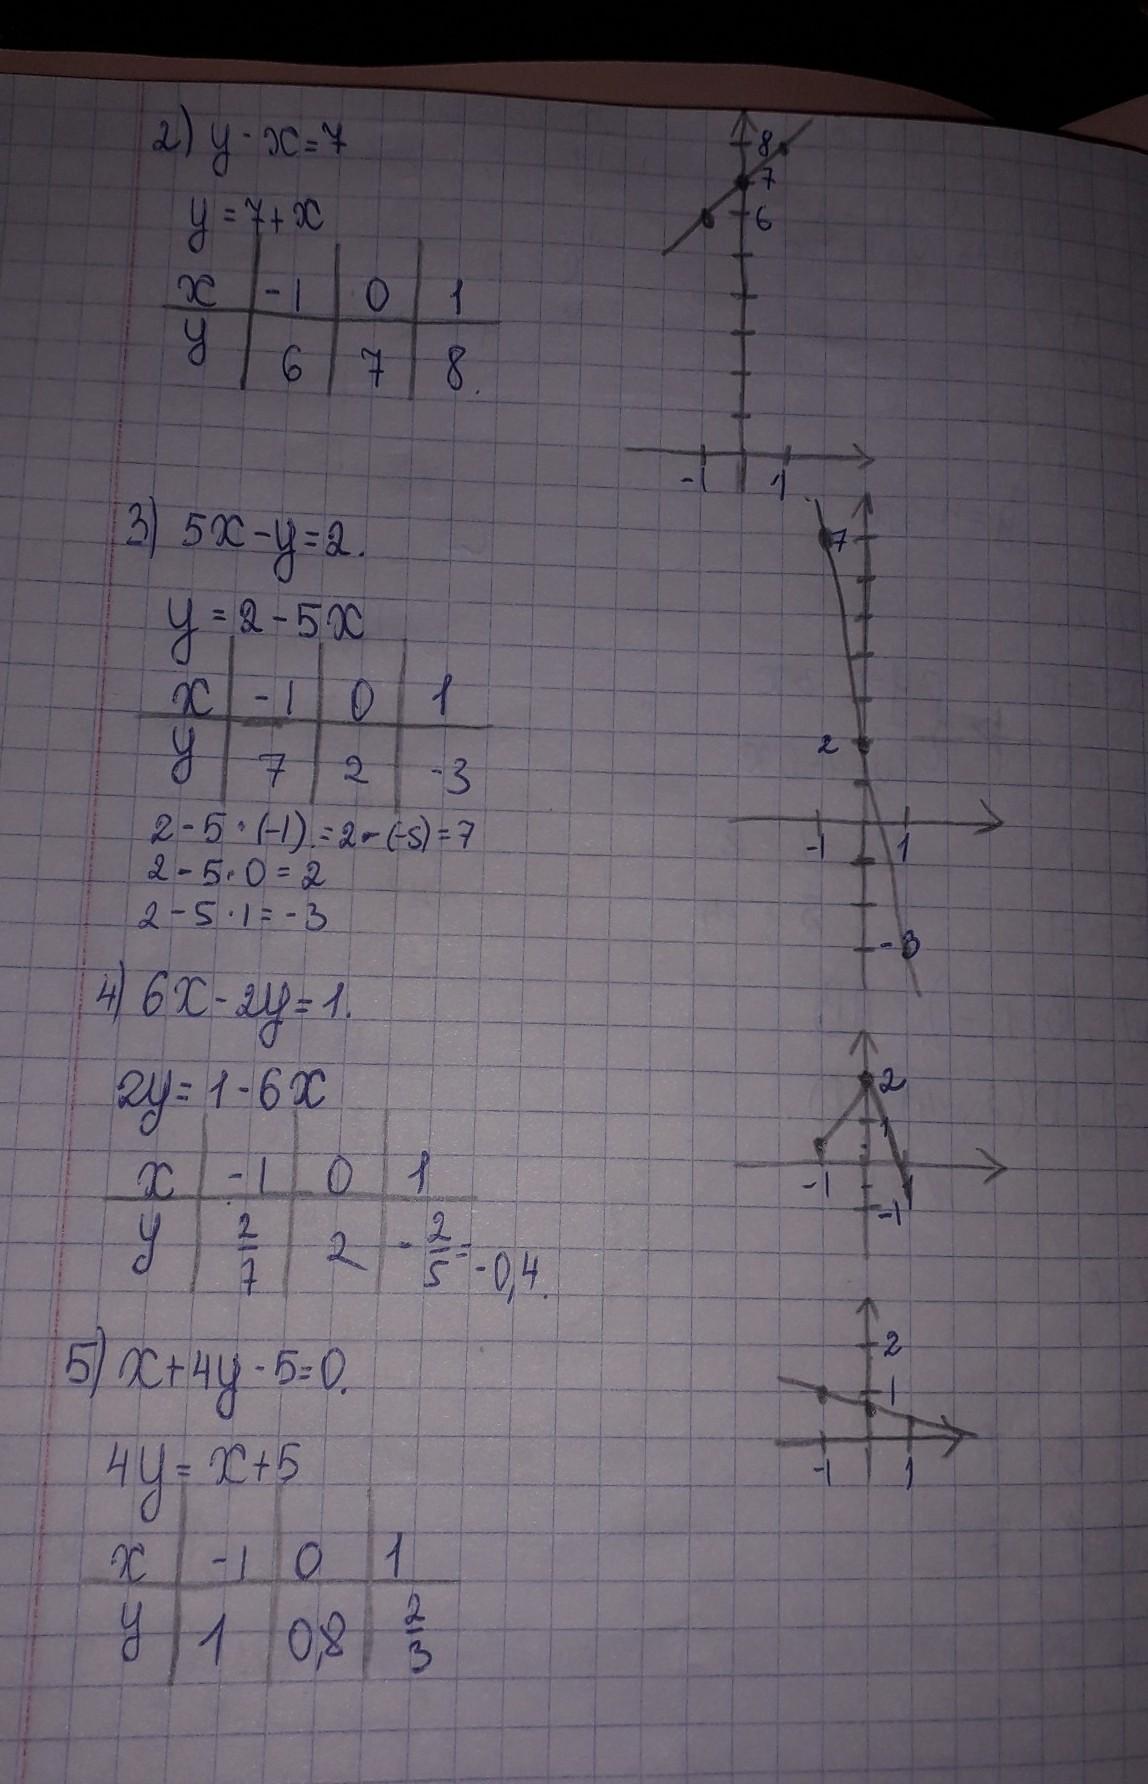 2) y - x = 7
y = 7 + x
x -1 0 1
y 6 7 8.
8
7
6
-1 1
3) 5x - y = 2.
y = 2 - 5x
x -1 0 1
y 7 2 -3
2 - 5 · (-1) = 2 - (-5) = 7
2 - 5 · 0 = 2
2 - 5 · 1 = -3
7
2
-1 1
-3
4) 6x - 2y = 1.
2y = 1 - 6x
x -1 0 1
y 2/7 2 -2/5 = -0,4.
2
1
-1 1
-1
5) x + 4y - 5 = 0.
4y = x + 5
x -1 0 1
y 1 0,8 2/3
2
1
-1 1